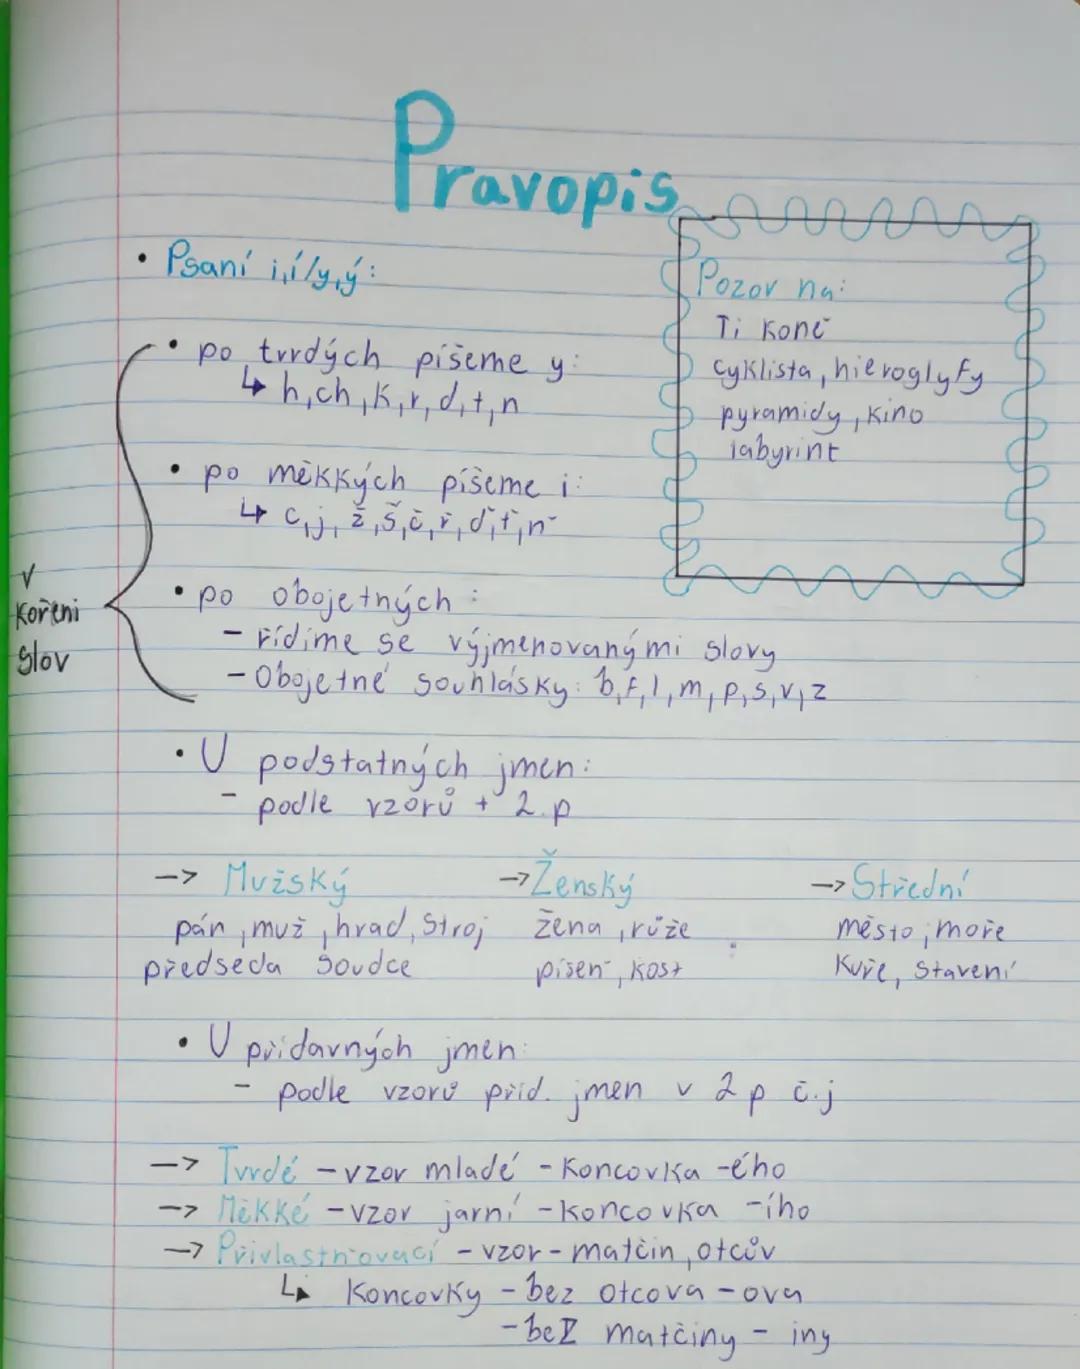 Pravopis
• Psaní i,í/y,ý:
• po tvrdých píšeme y:
↳ h, ch, k, r, d, t, n
• po měkkých píšeme i:
↳ c, j, ž, š, č, ř, ď, ť, ň
• po obojetných:
- řídíme se vyjmenovanými slovy
- Obojetné souhlásky: b, f, l, m, p, s, v, z
v
kořeni
slov
Pozor na:
Ti koně
cyklista, hieroglyfy
pyramidy, kino
labyrint
• U podstatných jmen:
- podle vzorů + 2. p
-> Mužský
pán, muž, hrad, stroj
předseda soudce
-> Ženský
žena, růže
píseň, kost
-> Střední
město, moře
kuře, stavení
• U přídavných jmen:
- podle vzorů příd. jmen v 2 p č.j
-> Tvrdé - vzor mladé - koncovka -ého
-> Měkké - vzor jarní - koncovka -ího
-> Přivlastňovací - vzor - matčin, otcův
↳ Koncovky - bez otcova - ova
- bez matčiny - iny